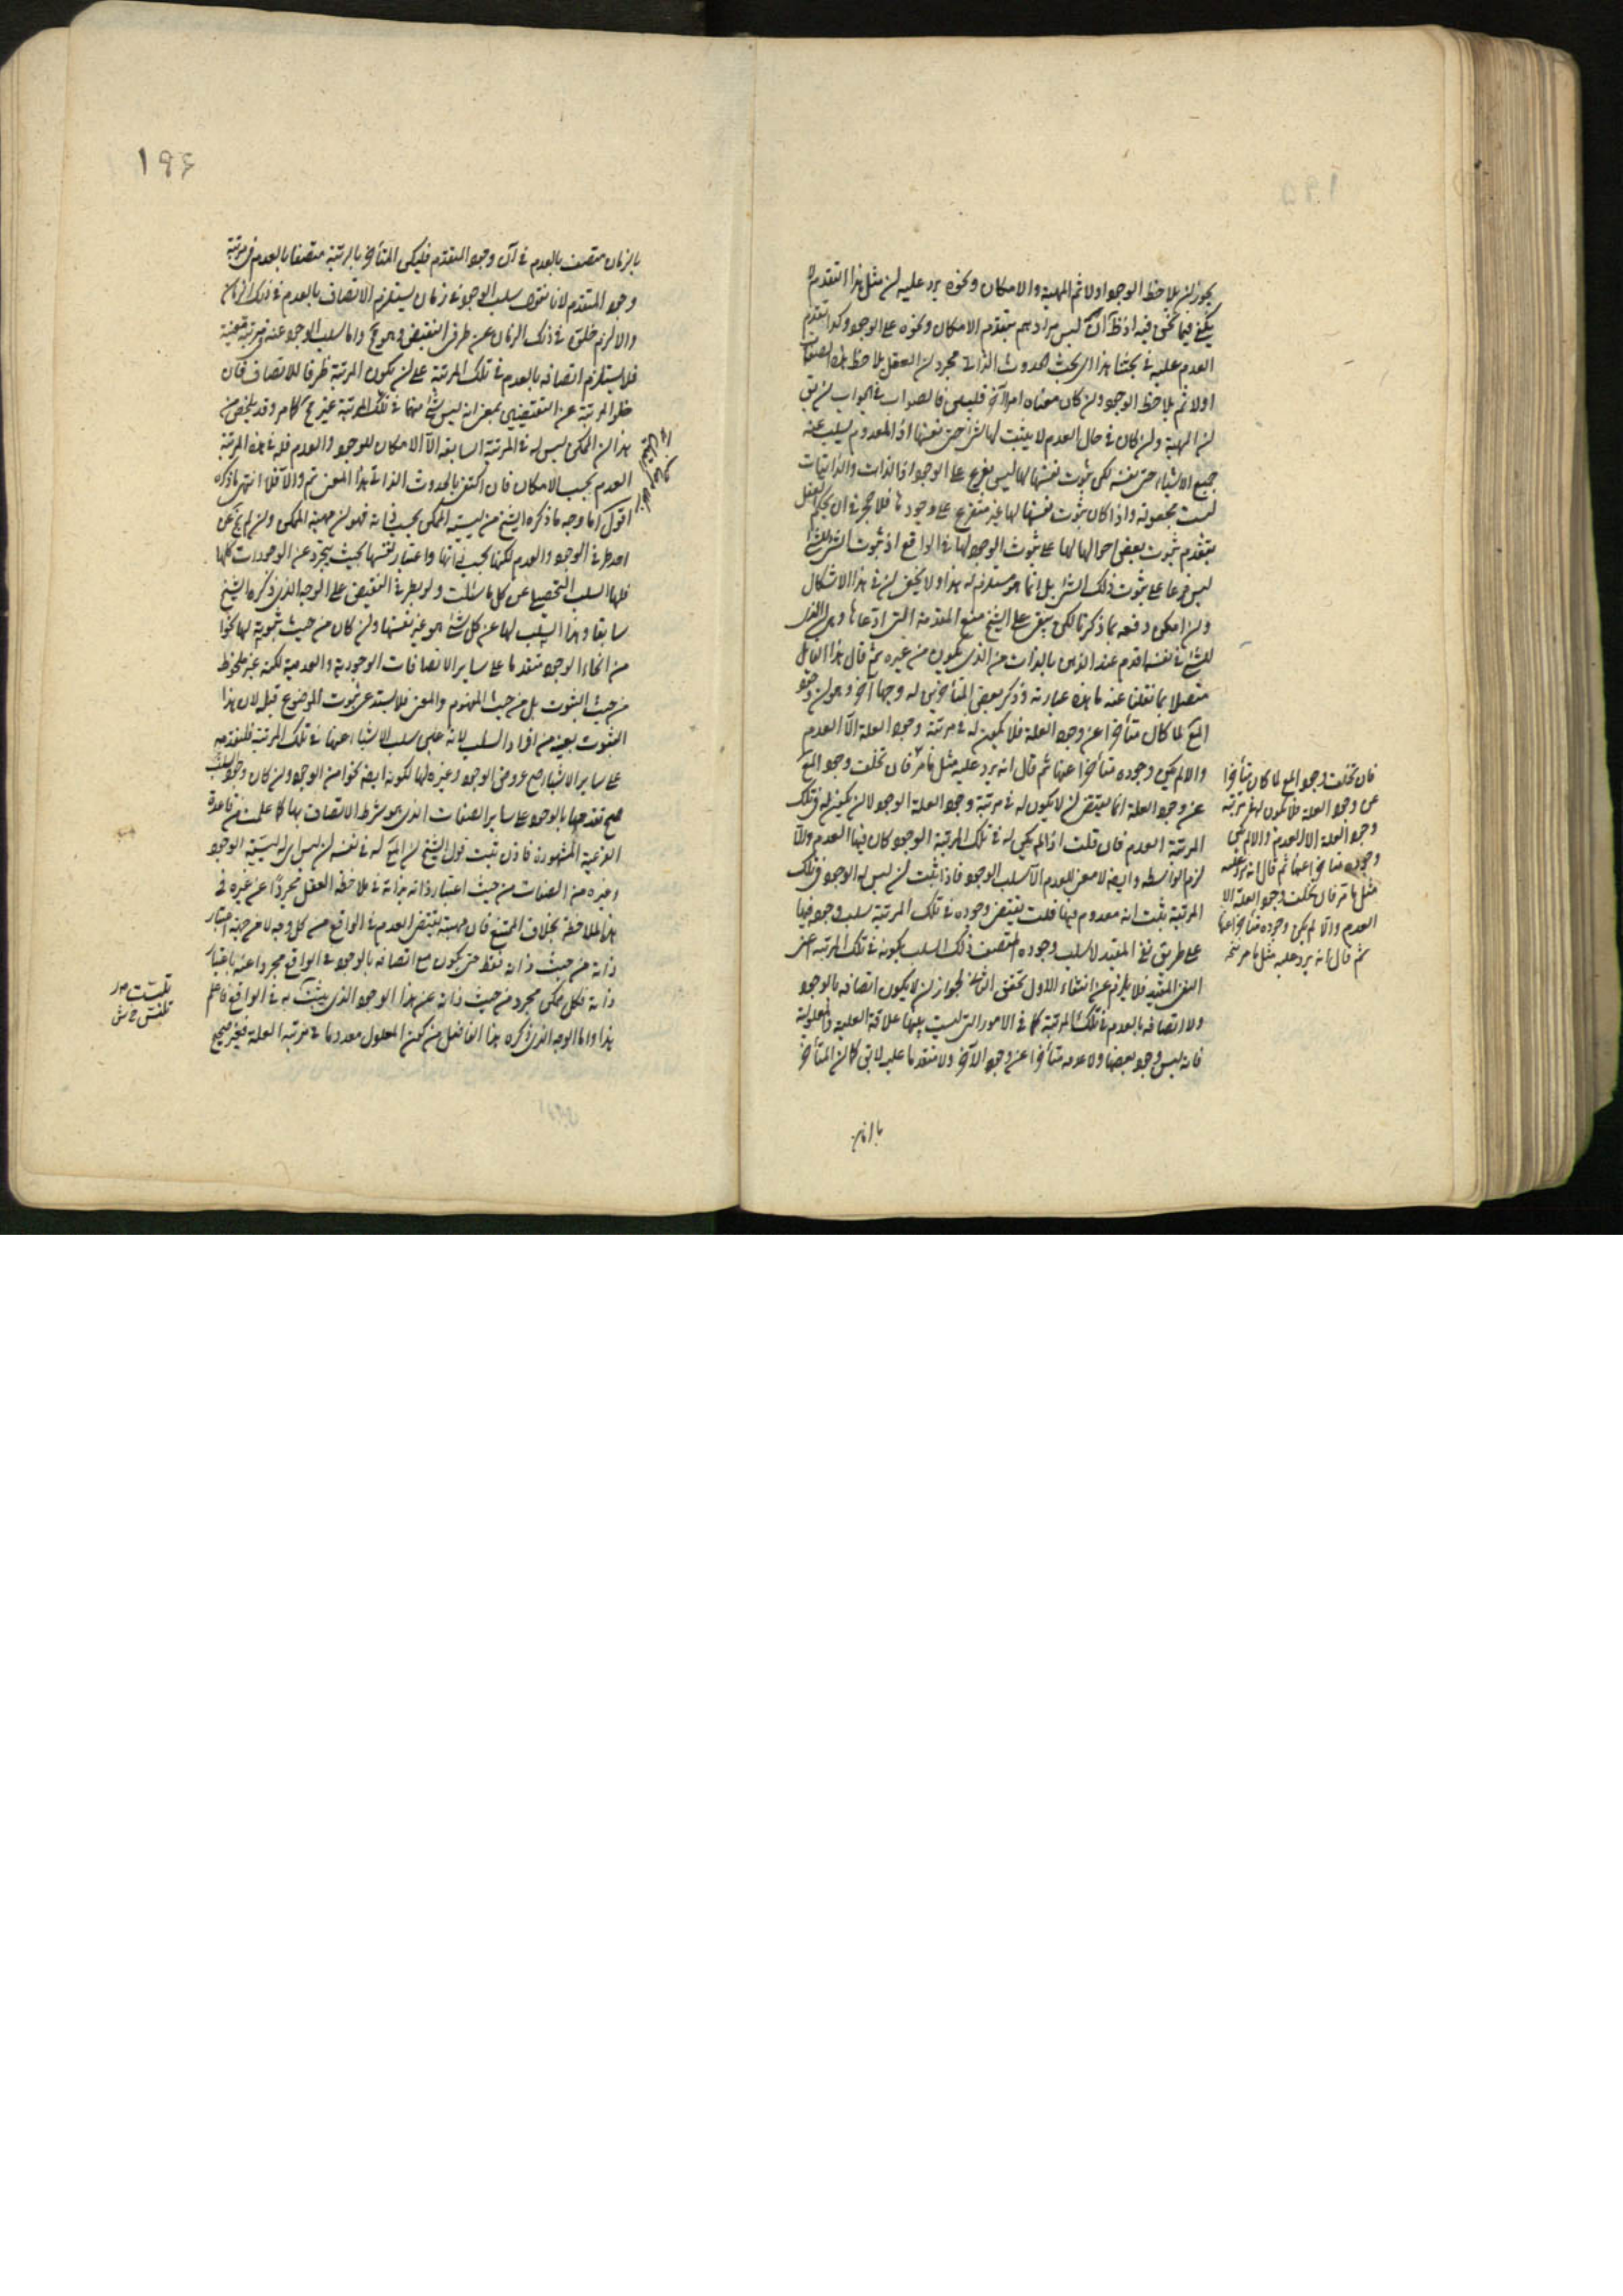 يجوز ان يلاحظ الوجود اولا ثم المهية والامكان ونحوه يرد عليه ان مثل هذا التقدم لا
يكفي فيما نحن فيه اذ ظ ان ليس مرادهم بتقدم الامكان ونحوه على الوجود وكذا تقدم
العدم عليه في بحثنا هذا اى بحث الحدوث الذاتي مجرد ان العقل يلاحظ هذه الصفات
اولا ثم يلاحظ الوجود وان كان معناه امرا آخر فليبين فالصواب في الجواب ان يق
ان المهية وان كان في حال العدم لا يثبت لها شئ حتى نفسها اذ المعدوم يسلب عنه
جميع الاشياء حتى نفسه لكن ثبوت نفسها لها ليس بفرع على الوجود اذ الذات والذاتيات
ليست بمجعولة واذا كان ثبوت نفسها لها غير متفرع على وجودها فلا حجر في ان يحكم العقل
بتقدم ثبوت بعض احوالها لها على ثبوت الوجود لها في الواقع اذ ثبوت الشئ للشئ
ليس فرعا على ثبوت ذلك الشئ بل انما هو مستلزم له هذا ولا يخفى ان في هذا الاشكال
وان امكن دفعه بما ذكرنا لكن يبقى على الشيخ منع المقدمة التي ادعاها وهي ان الذى
للشئ في نفسه اقدم عند الذهن بالذات من الذى يكون من غيره ثم قال هذا القائل
متصلا بما نقلنا عنه ما هذه عبارته وذكر بعض المتأخرين له وجها آخر وهو ان وجود
المع لما كان متأخرا عن وجود العلة فلا يكون له في مرتبة وجود العلة الا العدم
والا لم يكن وجوده متأخرا عنها ثم قال انه يرد عليه مثل ما مر فان تخلف وجود المع
عن وجود العلة انما يقتضى ان لا يكون له في مرتبة وجود العلة الوجود لا ان يكون له في تلك
المرتبة العدم فان قلت اذا لم يكن له في تلك المرتبة الوجود كان فيها العدم والا
لزم الواسطة وايضا لا معنى للعدم الا سلب الوجود فاذا ثبت ان ليس له الوجود في تلك
المرتبة ثبت انه معدوم فيها قلت نقيض وجوده في تلك المرتبة سلب وجوده فيها
على طريق نفى المقيد لا سلب وجوده المتصف ذلك السلب بكونه في تلك المرتبة اعنى
النفى المقيد فلا يلزم من انتفاء الاول تحقق الثانى لجواز ان لا يكون اتصافه بالوجود
ولا اتصافه بالعدم في تلك المرتبة كما في الامور التي ليست بينها علاقة العلية والمعلولية
فانه ليس وجود بعضها ولا عدمه متأخرا عن وجود الآخر ولا متقدما عليه لا يق كما ان المتأخر
بالزمان
فان تخلف وجود المع لما كان متأخرا
عن وجود العلة فلا يكون له في مرتبة
وجود العلة الا العدم والا لم يكن
وجوده متأخرا عنها ثم قال انه يرد عليه
مثل ما مر فان تخلف وجود العلة الا
العدم والا لم يكن وجوده متأخرا عنها
ثم قال انه يرد عليه مثل ما مر
١٩٦
بالزمان متصف بالعدم في آن وجود المتقدم فليكن المتأخر بالرتبة متصفا بالعدم في مرتبة
وجود المتقدم لانا نقول سلب الوجود في زمان يستلزم الاتصاف بالعدم في ذلك الزمان
والا لزم خلوه في ذلك الزمان عن طرفى النقيض وهو مح واما سلب الوجود عنه في مرتبة معينة
فلا يستلزم اتصافه بالعدم في تلك المرتبة على ان يكون المرتبة ظرفا للاتصاف فان
خلو المرتبة عن النقيضين بمعنى انه ليس شئ منهما في تلك المرتبة غير مح كما مر وقد يلخص من
هذا ان الممكن ليس له في المرتبة السابقة الا الامكان للوجود والعدم فله في هذه المرتبة
العدم بحسب الامكان فان اكتفى بالحدوث الذاتي بهذا المعنى تم والا فلا انتهى ما ذكره
اقول اما وجه ما ذكره الشيخ من ليسية الممكن بحسب ذاته فهو ان مهية الممكن وان لم يخل عن
احد طرفى الوجود والعدم لكنها بحسب ذاتها واعتبار نفسها بحيث يتجرد عن الوجودات كلها
فلها السلب التحصيلى عن كل ما سئلت ولو بطرفى النقيض على الوجه الذى ذكره الشيخ
سابقا وهذا السلب لها عن كل شئ هو غير نفسها وان كان من حيث ثبوته لها نحوا
من انحاء الوجود متقدما على ساير الاتصافات الوجودية والعدمية لكنه غير ملحوظ
من حيث الثبوت بل من حيث المفهوم والمعنى فلا يستدعى ثبوت الموضوع قبله لان هذا
الثبوت بعينه من افراد السلب لانه على سلب الاشياء عنها في تلك المرتبة فلتقدمه
على ساير الاشياء صح عروض الوجود وغيره لها لكونه ايضا نحوا من الوجود وان كان وجود السلب
صح تقدمها بالوجود على ساير الصفات الذى هو شرط الاتصاف بها كما علمت من قاعدة
الفرعية المشهورة فاذن ثبت قول الشيخ ان المع له في نفسه ان ليس اى له ليسية الوجود
وغيره من الصفات من حيث اعتبار ذاته بذاته في ملاحظة العقل مجردا عن غيره في
هذه الملاحظة بخلاف الممتنع فان مهيته يقتضى العدم في الواقع من كل وجه لا من جهة اعتبار
ذاته من حيث ذاته فقط حتى يكون مع اتصافه بالوجود في الواقع مجردا عنه باعتبار
ذاته فكل ممكن مجرد من حيث ذاته عن هذا الوجود الذى يثبت له في الواقع فاعلم
هذا واما الوجه الذى ذكره هذا الفاضل من كون المعلول معدوما في مرتبة العلة فغير صحيح